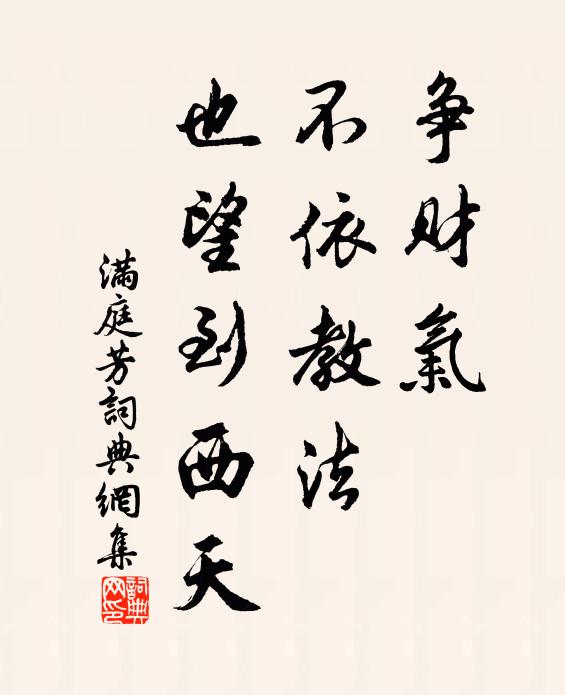 争財氣
不依教法
也望到西天
滿庭芳詞典網集
詞典网印